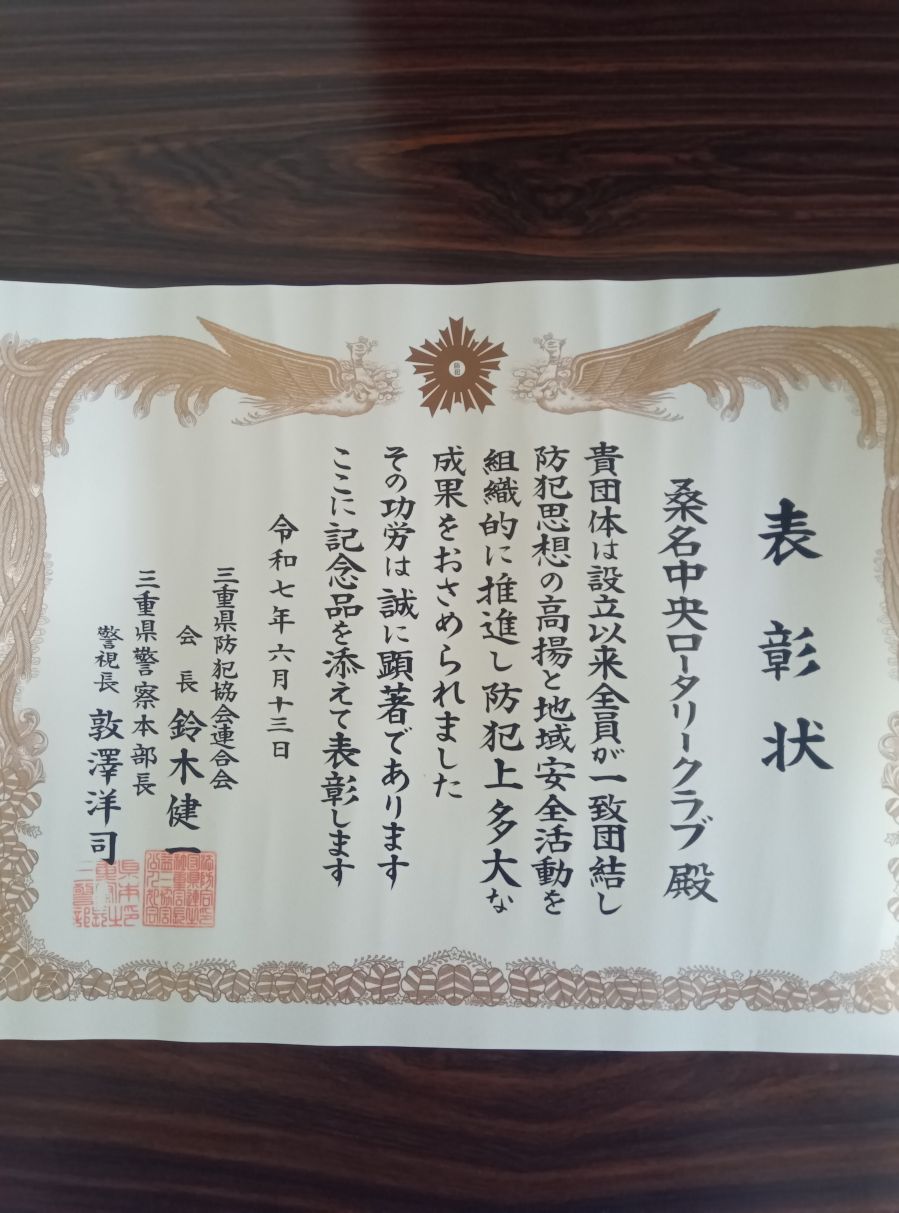 表彰状
桑名中央ロータリークラブ殿
貴団体は設立以来全員が一致団結し
防犯思想の高揚と地域安全活動を
組織的に推進し防犯上多大な
成果をおさめられました
その功労は誠に顕著であります
ここに記念品を添えて表彰します
令和七年六月十三日
三重県防犯協会連合会
会長 鈴木健一
三重県警察本部長
警視長 敦澤洋司